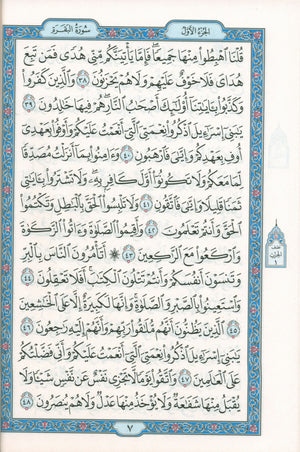 الجزء الأول
سورة البقرة
قُلْنَا ٱهْبِطُوا۟ مِنْهَا جَمِيعًا ۖ فَإِمَّا يَأْتِيَنَّكُم مِّنِّى هُدًى فَمَن تَبِعَ
هُدَاىَ فَلَا خَوْفٌ عَلَيْهِمْ وَلَا هُمْ يَحْزَنُونَ ٣٨ وَٱلَّذِينَ كَفَرُوا۟
وَكَذَّبُوا۟ بِـَٔايَـٰتِنَآ أُو۟لَـٰٓئِكَ أَصْحَـٰبُ ٱلنَّارِ ۖ هُمْ فِيهَا خَـٰلِدُونَ ٣٩
يَـٰبَنِىٓ إِسْرَٰٓءِيلَ ٱذْكُرُوا۟ نِعْمَتِىَ ٱلَّتِىٓ أَنْعَمْتُ عَلَيْكُمْ وَأَوْفُوا۟ بِعَهْدِىٓ
أُوفِ بِعَهْدِكُمْ وَإِيَّـٰىَ فَٱرْهَبُونِ ٤٠ وَءَامِنُوا۟ بِمَآ أَنزَلْتُ مُصَدِّقًا
لِّمَا مَعَكُمْ وَلَا تَكُونُوٓا۟ أَوَّلَ كَافِرٍۭ بِهِۦ ۖ وَلَا تَشْتَرُوا۟ بِـَٔايَـٰتِى
ثَمَنًا قَلِيلًا وَإِيَّـٰىَ فَٱتَّقُونِ ٤١ وَلَا تَلْبِسُوا۟ ٱلْحَقَّ بِٱلْبَـٰطِلِ وَتَكْتُمُوا۟
ٱلْحَقَّ وَأَنتُمْ تَعْلَمُونَ ٤٢ وَأَقِيمُوا۟ ٱلصَّلَوٰةَ وَءَاتُوا۟ ٱلزَّكَوٰةَ
وَٱرْكَعُوا۟ مَعَ ٱلرَّٰكِعِينَ ٤٣ ۞ أَتَأْمُرُونَ ٱلنَّاسَ بِٱلْبِرِّ
وَتَنسَوْنَ أَنفُسَكُمْ وَأَنتُمْ تَتْلُونَ ٱلْكِتَـٰبَ ۚ أَفَلَا تَعْقِلُونَ ٤٤
وَٱسْتَعِينُوا۟ بِٱلصَّبْرِ وَٱلصَّلَوٰةِ ۚ وَإِنَّهَا لَكَبِيرَةٌ إِلَّا عَلَى ٱلْخَـٰشِعِينَ
٤٥ ٱلَّذِينَ يَظُنُّونَ أَنَّهُم مُّلَـٰقُوا۟ رَبِّهِمْ وَأَنَّهُمْ إِلَيْهِ رَٰجِعُونَ ٤٦
يَـٰبَنِىٓ إِسْرَٰٓءِيلَ ٱذْكُرُوا۟ نِعْمَتِىَ ٱلَّتِىٓ أَنْعَمْتُ عَلَيْكُمْ وَأَنِّى فَضَّلْتُكُمْ
عَلَى ٱلْعَـٰلَمِينَ ٤٧ وَٱتَّقُوا۟ يَوْمًا لَّا تَجْزِى نَفْسٌ عَن نَّفْسٍ شَيْـًٔا وَلَا
يُقْبَلُ مِنْهَا شَفَـٰعَةٌ وَلَا يُؤْخَذُ مِنْهَا عَدْلٌ وَلَا هُمْ يُنصَرُونَ ٤٨
٧